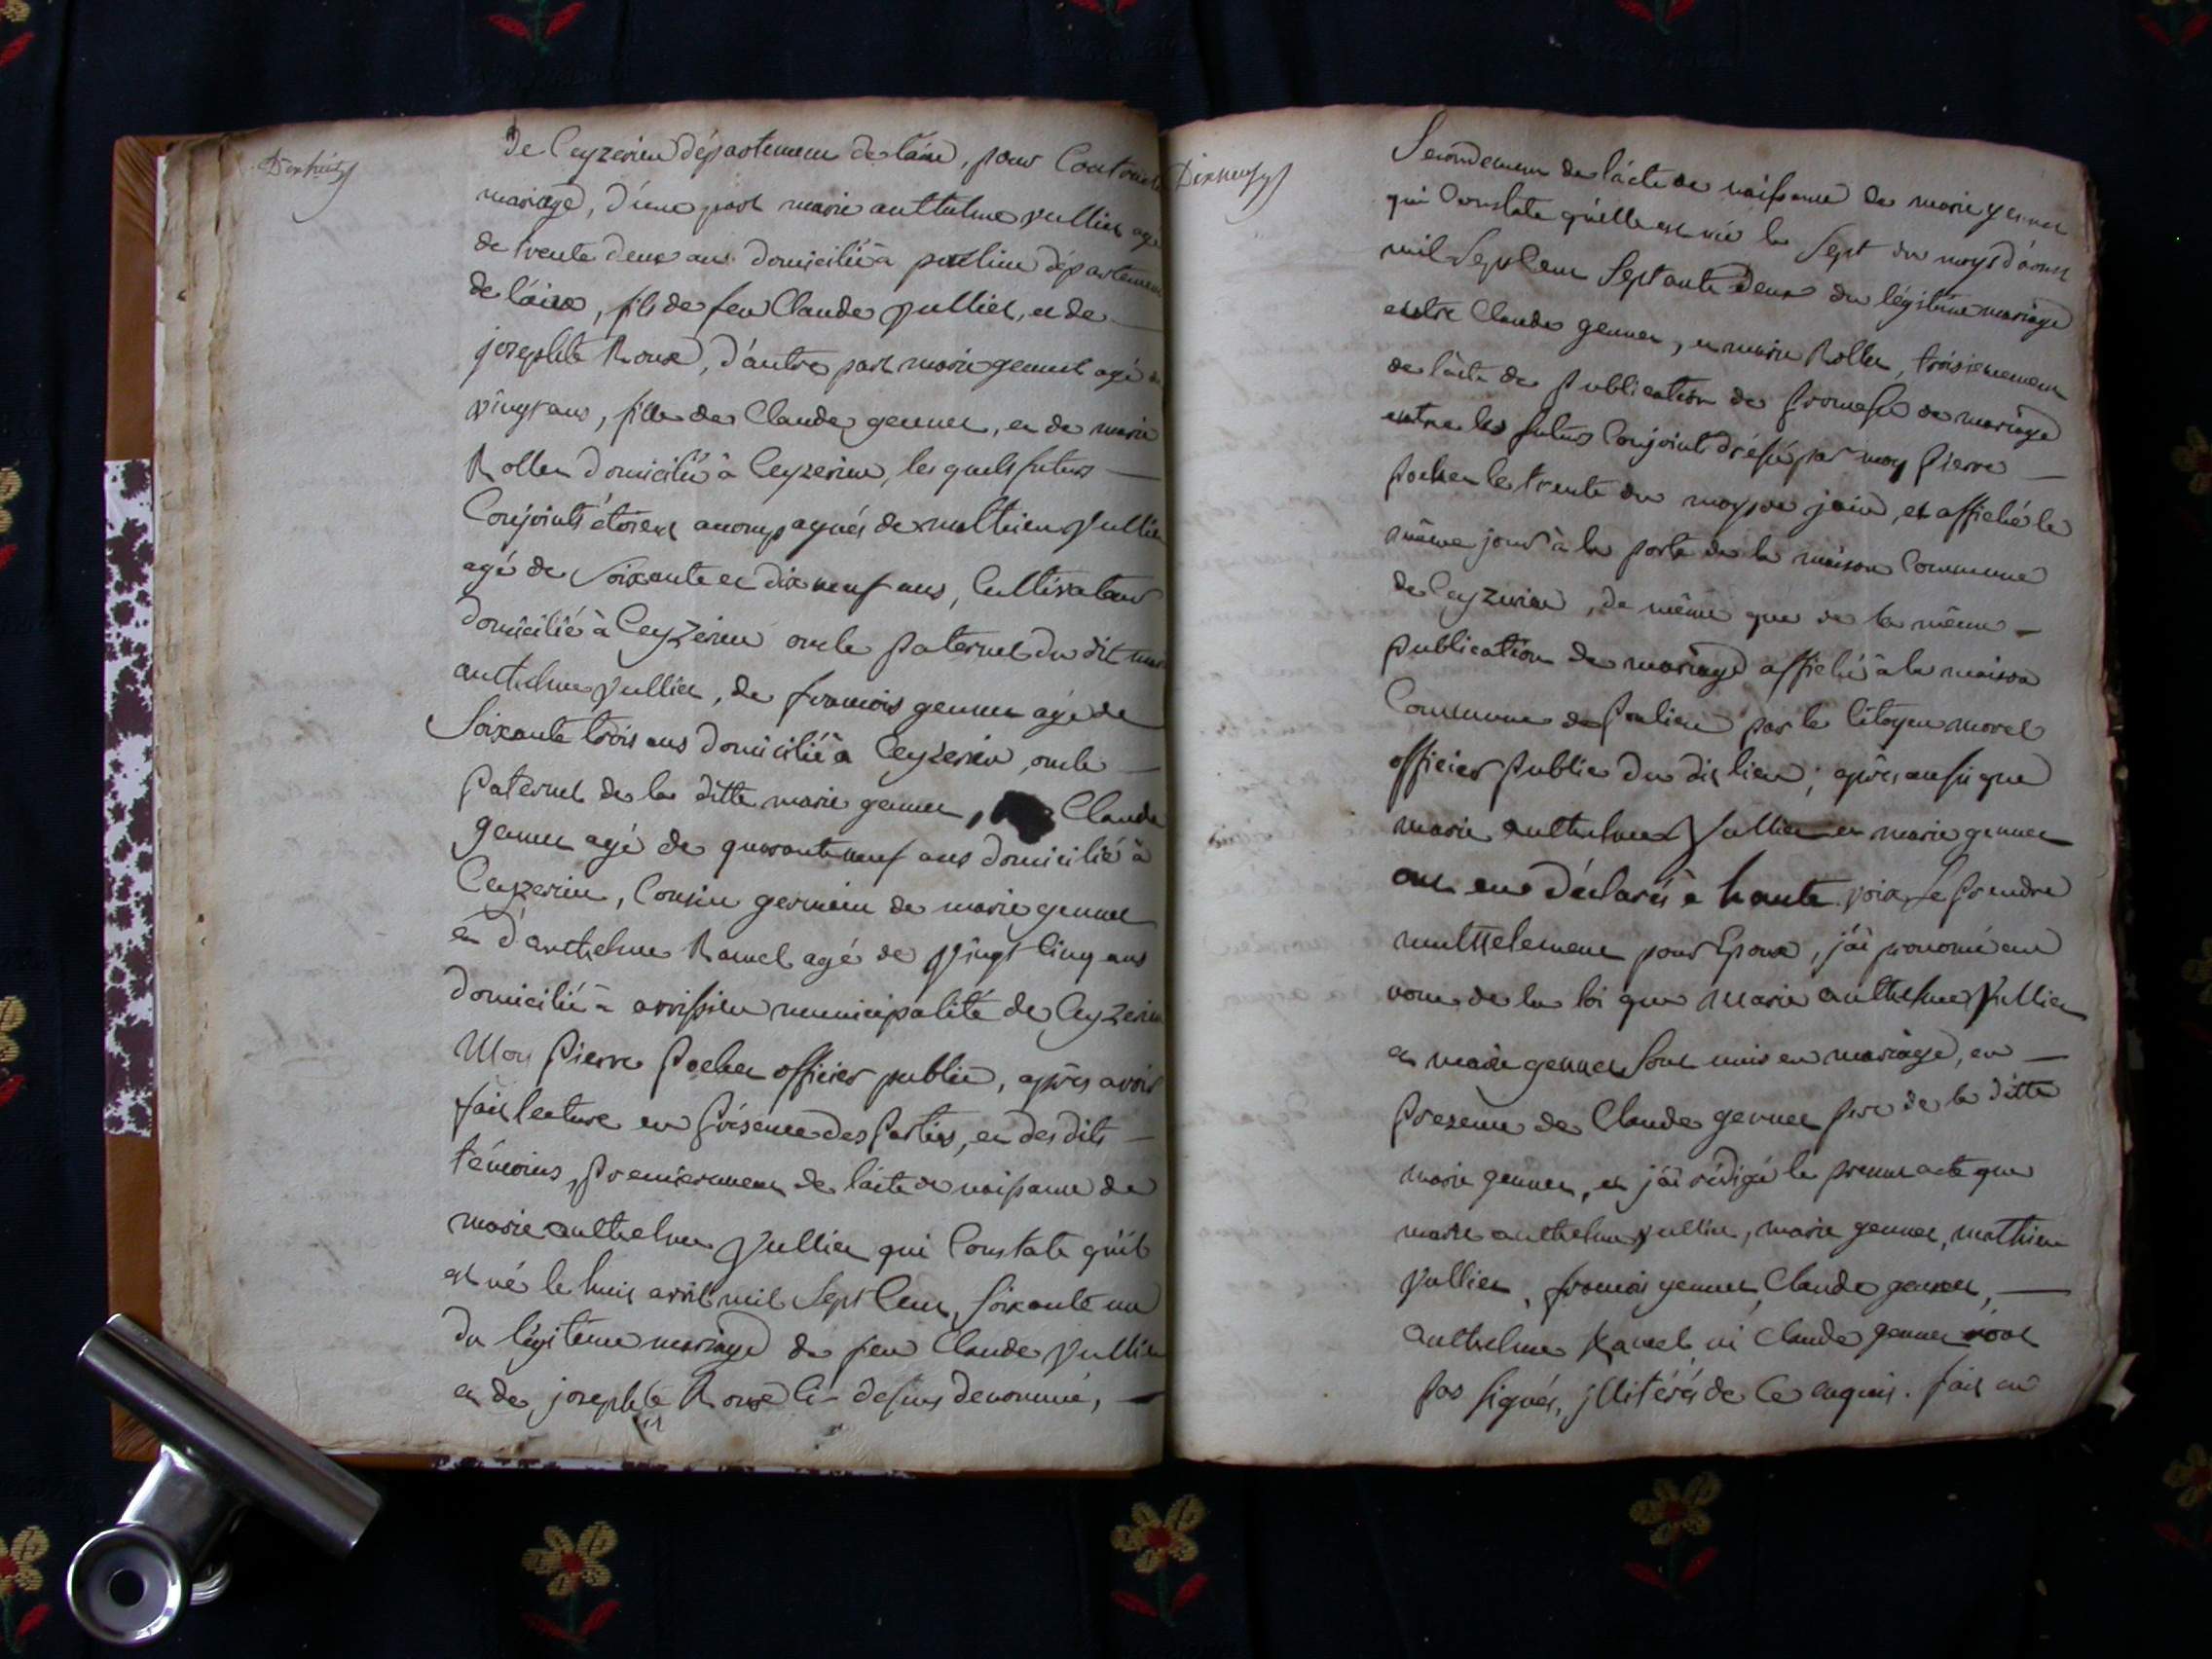 Dixhuit
De Ceyzerieu département de l'ain, pour Contracter
mariage, d'une part marie anthelme vullier agé
de trente deux ans domicilié à pollieu département
de l'ain, fils de feu Claude vullier, et de
josephte Roux, d'autre part marie gennet agé de
vingt ans, fille de Claude gennet, et de marie
Rollet domicilié à Ceyzerieu, les quels futurs
Conjoints étoient acompagnés de mathieu Vullier
agé de soixante et dix neuf ans, Cultivateur
domicilié à Ceyzerieu oncle paternel du dit marie
anthelme vullier, de francois gennet agé de
Soixante trois ans domicilié à Ceyzerieu, oncle
paternel de la ditte marie gennet, Claude
gennet agé de quarante neuf ans domicilié à
Ceyzerieu, Cousin germain de marie gennet
et d'anthelme Ramel agé de vingt Cinq ans
domicilié à avrissieu municipalité de Ceyzerieu
Moy pierre pochet officier public, après avoir
fait lecture en présence des parties, et des dits
témoins, premierement de l'acte de naissance de
marie anthelme Vullier qui Constate qu'il
est né le huit avril mil Sept Cent, soixante un
du légitime mariage de feu Claude Vullier
et de josephte Roux Ci-dessus denommé,
Dixneuf
Secondement de l'acte de naissance de marie gennet
qui Constate qu'elle est née le Sept du moys d'aoust
mil Sept Cent Septante Deux du légitime mariage
entre Claude gennet, et marie Rollet, troisiemement
de l'acte de publication de promesse de mariage
entre les futurs Conjoints drésé par moy pierre
pochet le trente du moys de juin, et affiché le
même jour à la porte de la maison Commune
de Ceyzerieu, de même que de la même
publication de mariage affiché à la maison
Commune de polieu par le Citoyen morel
officier public du dit lieu; après aussi que
marie anthelme Vullier et marie gennet
ont eu déclarés à haute voix se prendre
mutuellement pour Epoux, j'ai prononcé au
nom de la loi que Marie anthelme Vullier
et marie gennet sont unis en mariage, en
presence de Claude gennet pere de la ditte
marie gennet, et j'ai rédigé le present acte que
marie anthelme vullier, marie gennet, mathieu
Vullier, francois gennet, Claude gennet,
anthelme Ramel ni Claude gennet n'ont
pas signés, illitérés de Ce enquis. fait en